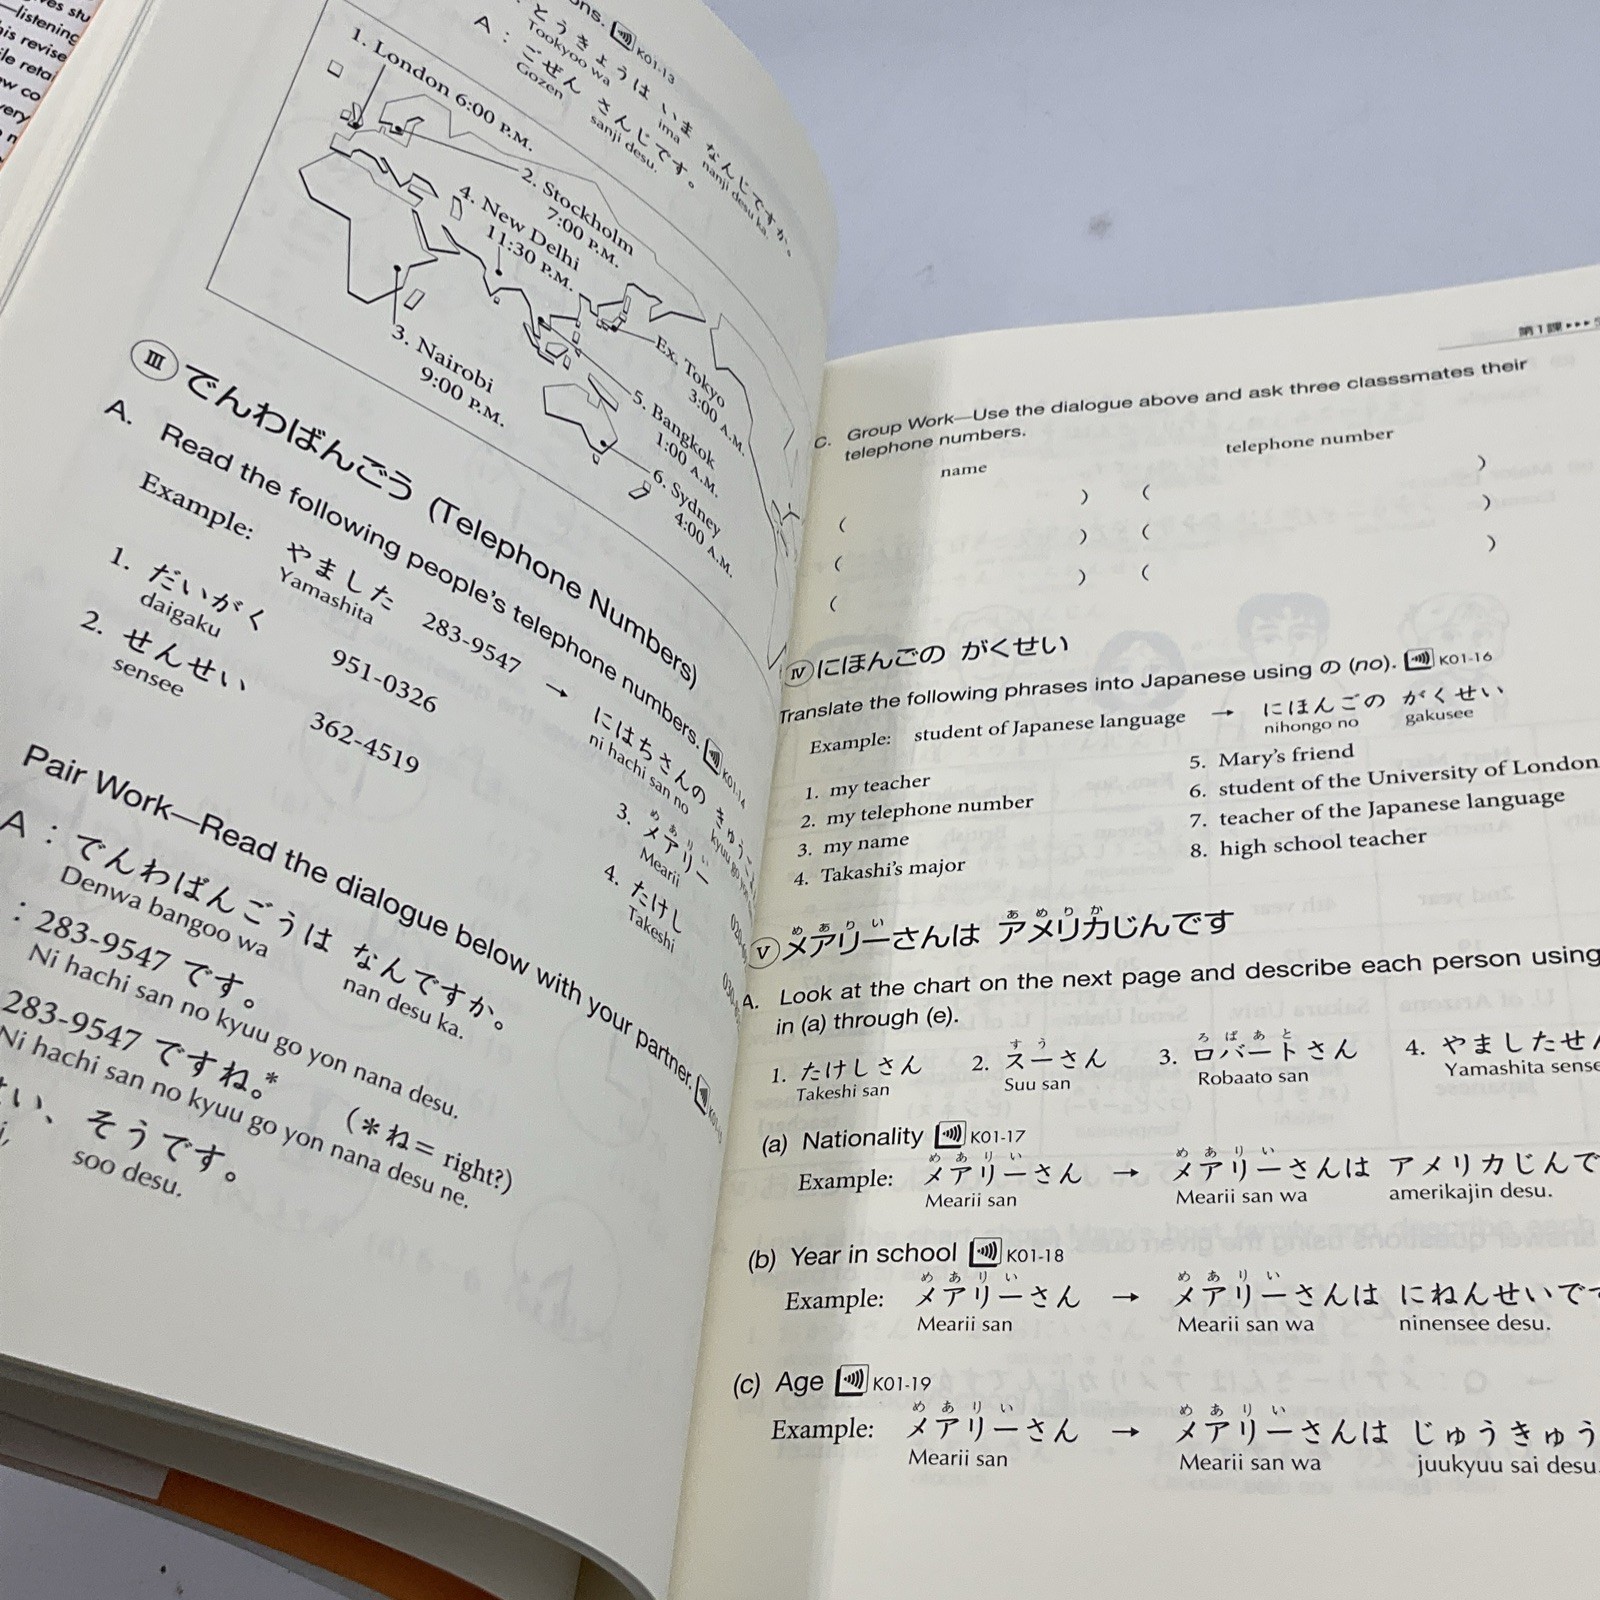 listening
K01-13
とうきょうは いま なんじですか。
Tookyoo wa ima nanji desu ka.
A : ごぜん さんじです。
Gozen sanji desu.
1. London 6:00 P.M.
2. Stockholm
7:00 P.M.
4. New Delhi
11:30 P.M.
3. Nairobi
9:00 P.M.
Ex. Tokyo
3:00 A.M.
5. Bangkok
1:00 A.M.
6. Sydney
4:00 A.M.
Ⅲ でんわばんごう (Telephone Numbers)
A. Read the following people's telephone numbers. K01-14
Example: やました 283-9547 → にはちさんの
Yamashita ni hachi san no
1. だいがく 951-0326
daigaku
2. せんせい 362-4519
sensee
3. メアリー
めありい
Mearii
4. たけし
Takeshi
Pair Work—Read the dialogue below with your partner.
A : でんわばんごうは なんですか。
Denwa bangoo wa nan desu ka.
: 283-9547 です。
Ni hachi san no kyuu go yon nana desu.
283-9547 ですね。* (*ね= right?)
Ni hachi san no kyuu go yon nana desu ne.
そうです。
soo desu.
第1課▸▸▸
C. Group Work—Use the dialogue above and ask three classsmates their
telephone numbers.
name telephone number
( ) ( )
( ) ( )
( ) ( )
Ⅳ にほんごの がくせい
Translate the following phrases into Japanese using の (no). K01-16
Example: student of Japanese language → にほんごの がくせい
nihongo no gakusee
1. my teacher
2. my telephone number
3. my name
4. Takashi's major
5. Mary's friend
6. student of the University of London
7. teacher of the Japanese language
8. high school teacher
めありい あめりか
Ⅴ メアリーさんは アメリカじんです
A. Look at the chart on the next page and describe each person using
in (a) through (e).
すう ろばあと
1. たけしさん 2. スーさん 3. ロバートさん 4. やましたせ
Takeshi san Suu san Robaato san Yamashita sense
(a) Nationality K01-17
めありい めありい
Example: メアリーさん → メアリーさんは アメリカじんで
Mearii san Mearii san wa amerikajin desu.
(b) Year in school K01-18
めありい めありい
Example: メアリーさん → メアリーさんは にねんせいで
Mearii san Mearii san wa ninensee desu.
(c) Age K01-19
めありい めありい
Example: メアリーさん → メアリーさんは じゅうきゅう
Mearii san Mearii san wa juukyuu sai desu